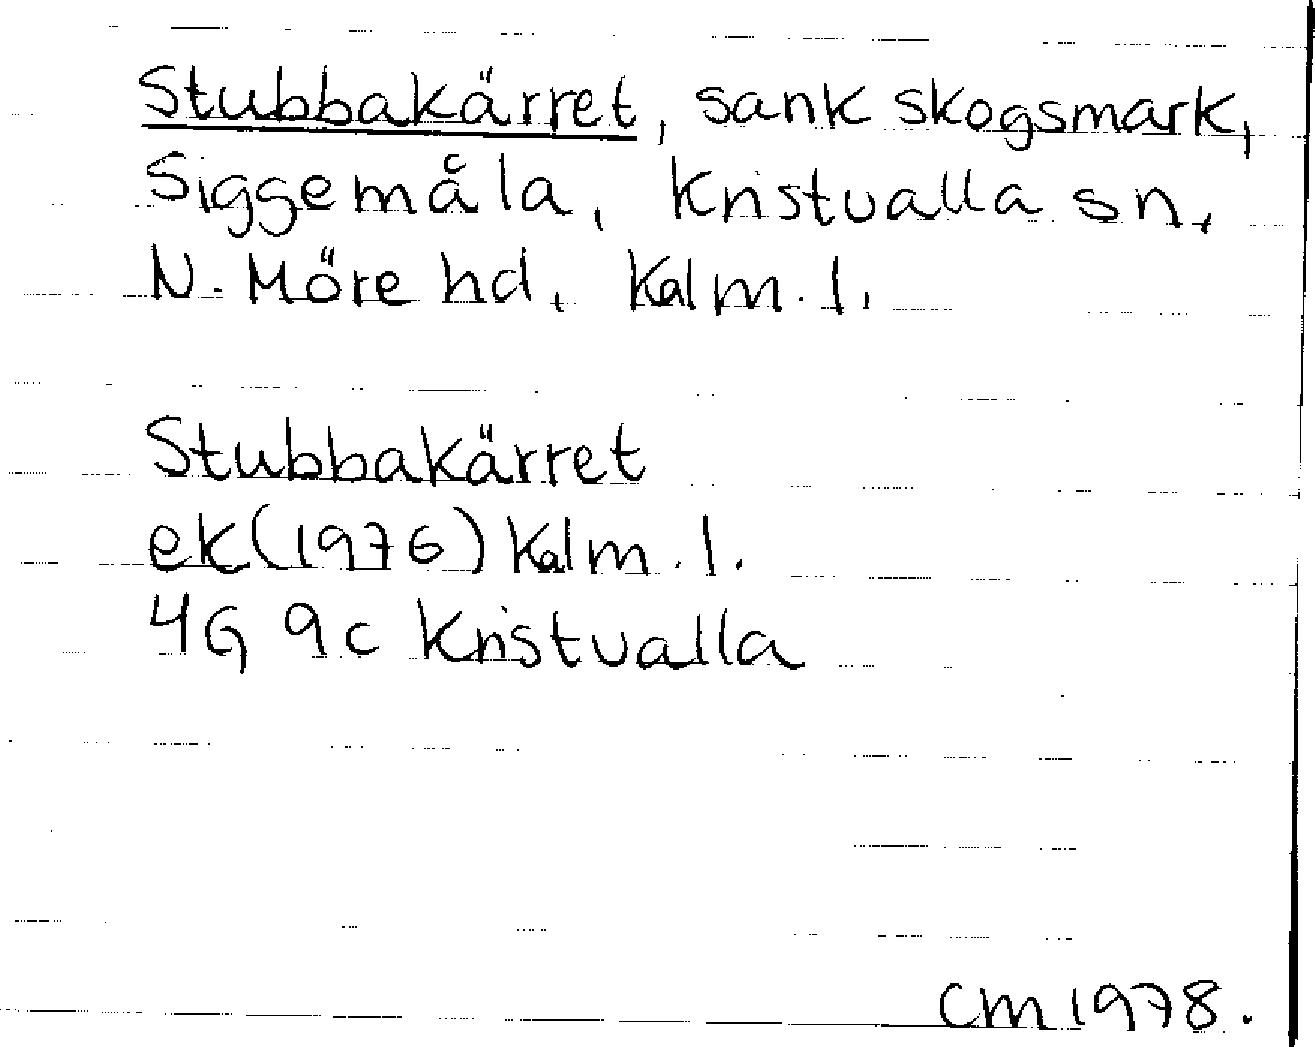 Stubbakärret, sank skogsmark,
Siggemåla, Kristvalla sn,
N. Möre hd, Kalm. l.
Stubbakärret
ek (1976) Kalm. l.
4G 9c Kristvalla
CM 1978.